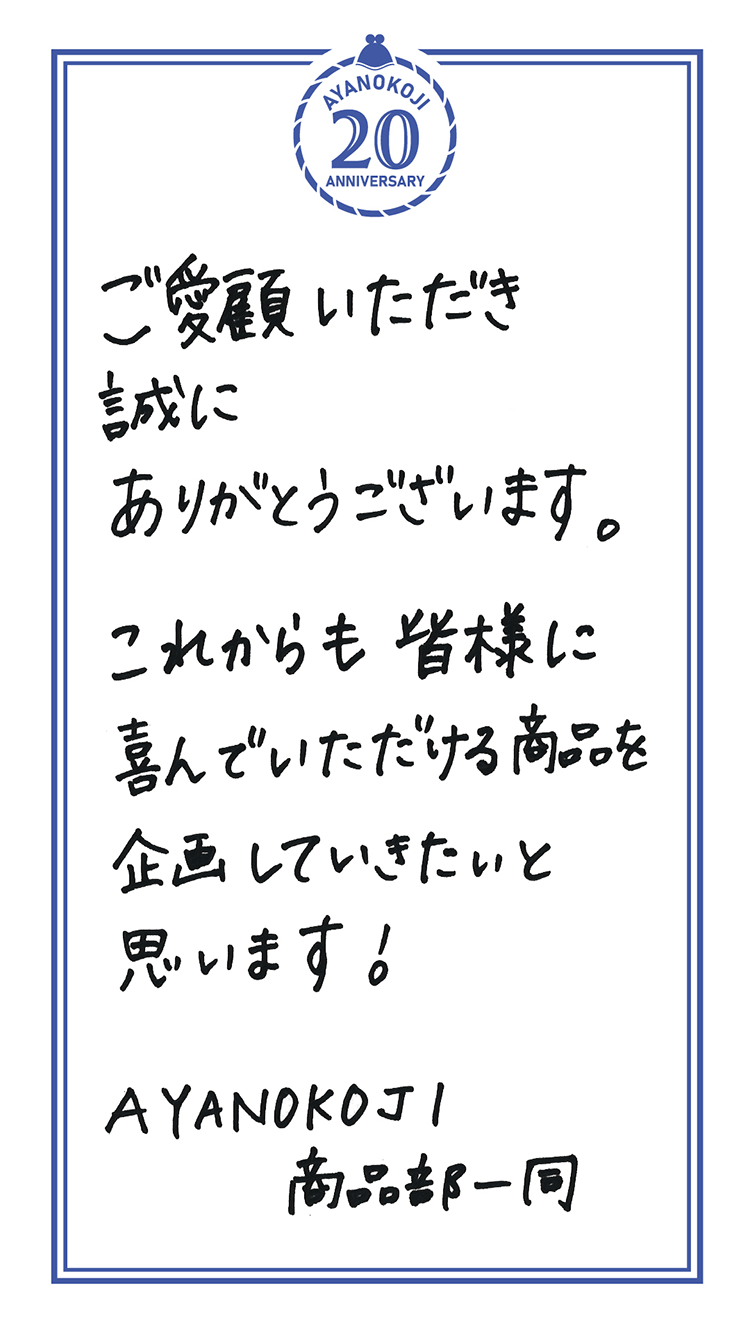 AYANOKOJI
20
ANNIVERSARY
ご愛顧いただき
誠に
ありがとうございます。
これからも 皆様に
喜んでいただける商品を
企画していきたいと
思います!
AYANOKOJI
商品部一同